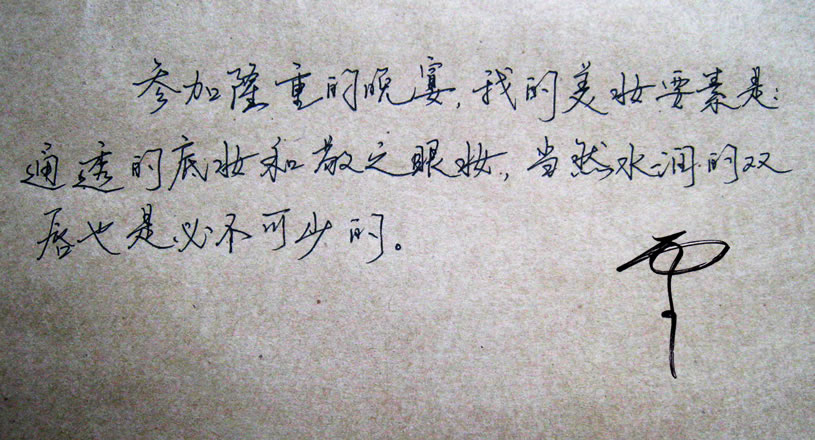 参加隆重的晚宴，我的美妆要素是：
通透的底妆和散之眼妆，当然水润的双
唇也是必不可少的。